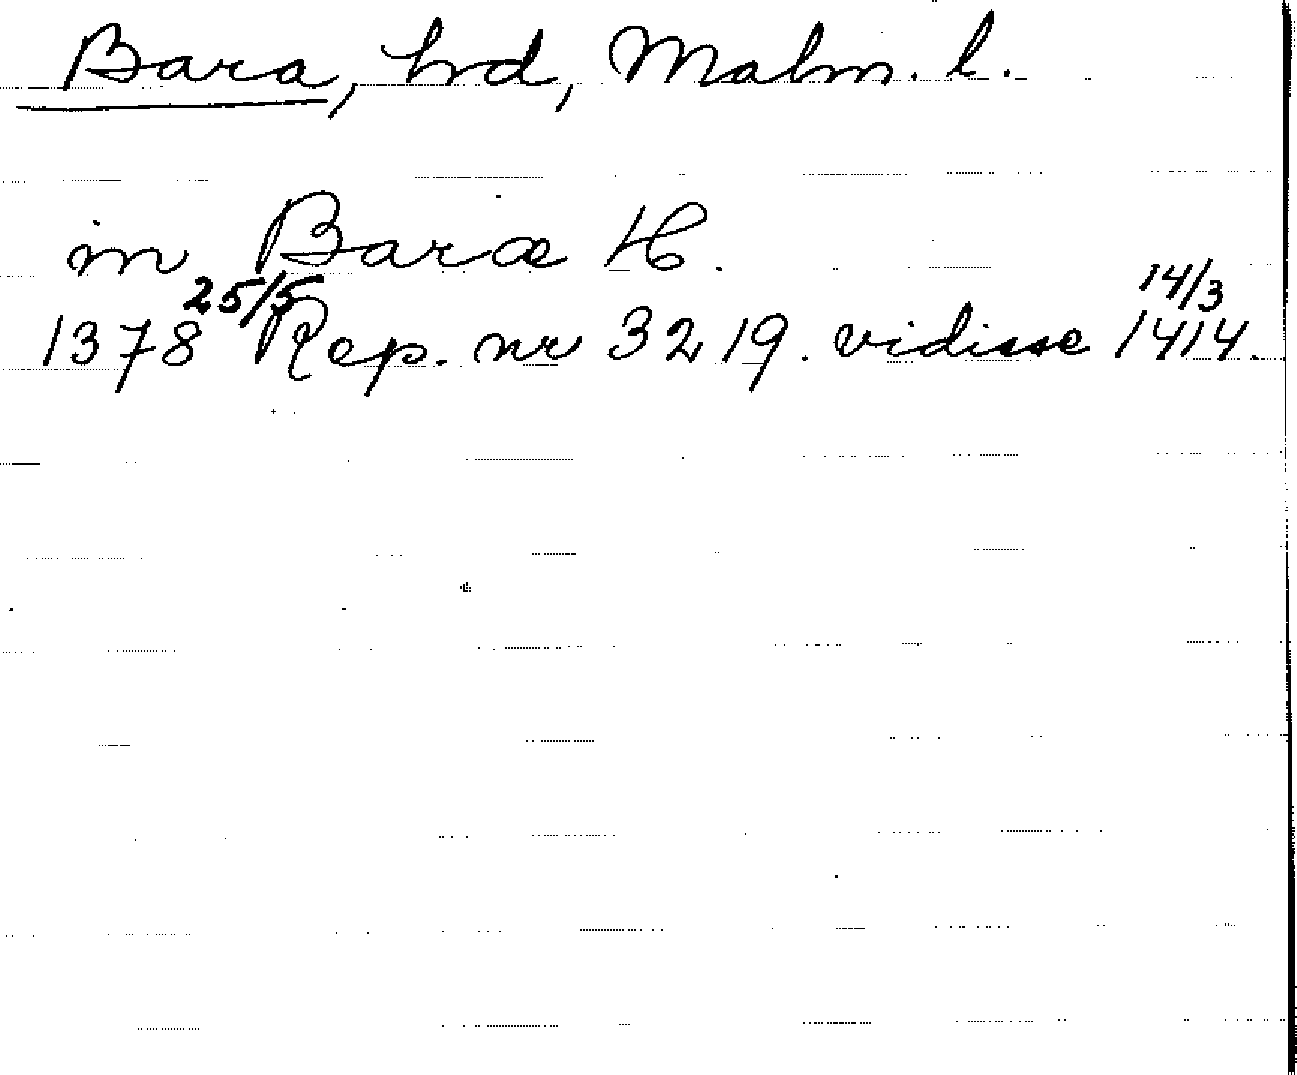 Bara, hrd, Malm. l.
in Baræ H.
1378 25/5 Rep. nr 3219. vidisse 14/3 1414.